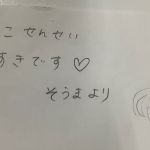 こ せんせい
すきです♡
そうまより